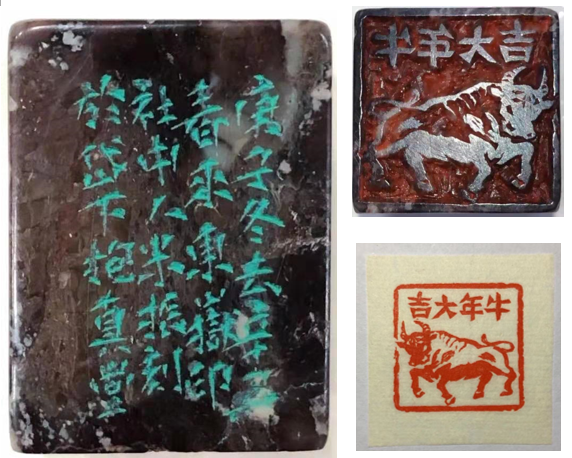 庚子冬去辛丑
春来東嶽印
社中人米振刻
於岱下抱真堂
牛年大吉
牛年大吉